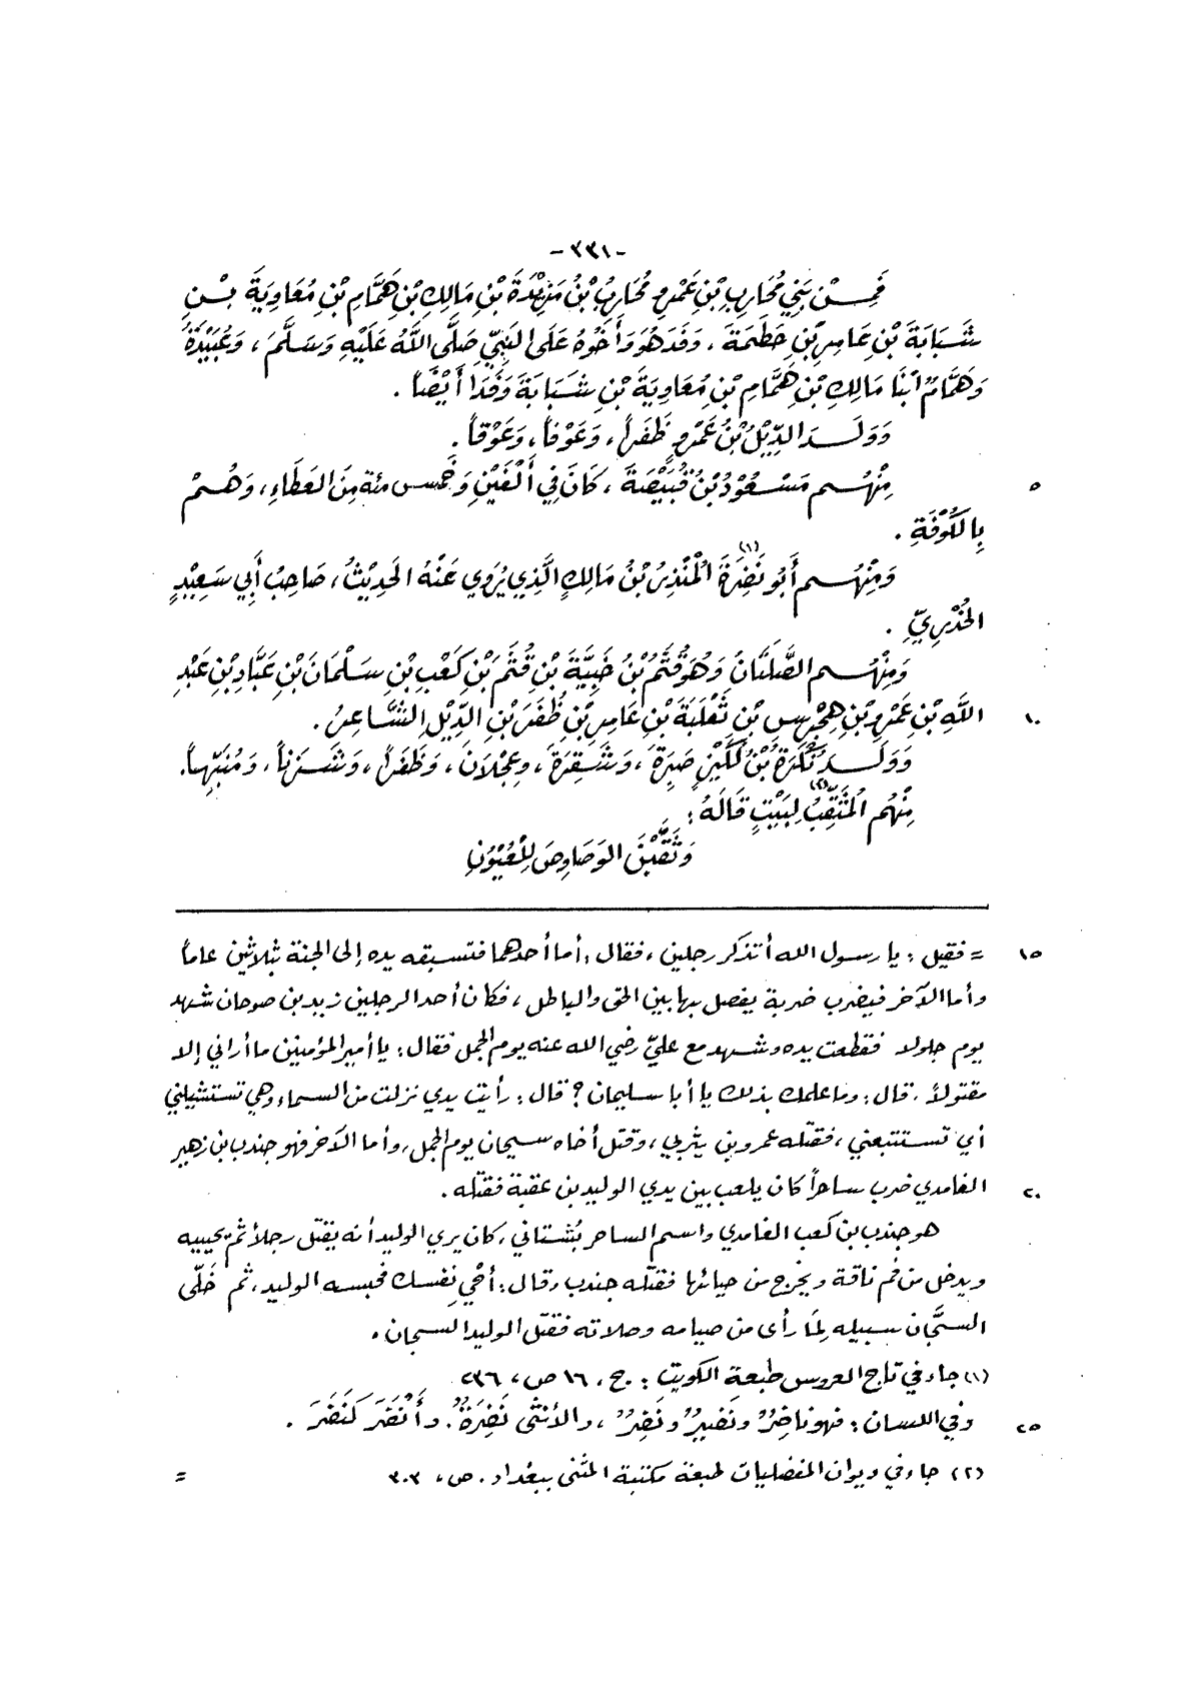 -٣٣١-
فَمِـنْ بَنِي مُحَارِبِ بْنِ عَمْرٍو مُحَارِبُ بْنُ مَزِيْدَةَ بْنِ مَالِكِ بْنِ هَمَّامِ بْنِ مُعَاوِيَةَ بْـنِ
شَـبَابَةَ بْنِ عَامِرِ بْنِ حَطَمَةَ ، وَفَدَ هُوَ وَأَخُوْهُ عَلَى النَّبِيِّ صَلَّى اللهُ عَلَيْهِ وَسَلَّمَ ، وَعُبَيْدَةُ
وَهَمَّامٌ ابْنَا مَالِكِ بْنِ هَمَّامِ بْنِ مُعَاوِيَةَ بْنِ شَـبَابَةَ وَفَدَا أَيْضًا .
وَوَلَـدَ الدِّيْلُ بْنُ عَمْرٍو ظَفَراً ، وَعَوْفاً ، وَعَوْقاً .
مِنْهُـم مَسْـعُوْدُ بْنُ قُبَيْصَةَ ، كَانَ فِي أَلْفَيْنِ وَخَمْس مئة مِنَ العَطَاءِ ، وَهُـمْ
٥
بِالكُوْفَةِ .
وَمِنْهُـم أَبُو نَضِرَةَ (١) الْمُنْذِرُ بْنُ مَالِكٍ الَّذِي يُرْوِي عَنْهُ الحَدِيْثُ ، صَاحِبُ أَبِي سَعِيْدٍ
الخُدْرِيّ .
وَمِنْهُـم الصَّلَتَانُ وَهُوَ قُثَمُ بْنُ خَبِيَّةَ بْنِ قُثَمَ بْنِ كَعْبِ بْنِ سَـلْمَانَ بْنِ عَبَّادِ بْنِ عَبْدِ
اللهِ بْنِ عَمْرِو بْنِ هِجْرِسِ بْنِ ثَعْلَبَةَ بْنِ عَامِرِ بْنِ ظَفَرِ بْنِ الدِّيْلِ الشَّـاعِرُ .
١٠
وَوَلَـدَ نُكْرَةُ بْنُ لُكَيْزٍ صَبِرَةَ ، وَشَـقِرَةَ ، وعِجْلَانَ ، وَظَفَراً ، وَشَـزَناً ، وَمُنَبِّهاً .
مِنْهُم الْمُثَقِّبُ (٢) لِبَيْتٍ قَالَهُ :
وَثَقَّبْنَ الوَصَاوِصَ لِلْعُيُوْنِ
= فقيل : يا رسول الله أتذكر رجلين ، فقال : أما أحدهما فتسبقه يده إلى الجنة ثلاثين عاماً
١٥
وأما الآخر فيضرب ضربة يفصل بها بين الحق والباطل ، فكان أحد الرجلين زيد بن صوحان شهد
يوم جلولا فقطعت يده وشهد مع عليّ رضي الله عنه يوم الجمل فقال : يا أمير المؤمنين ما أراني إلا
مقتولاً ، قال : وما علمك بذلك يا أبا سليمان ؟ قال : رأيت يدي نزلت من السماء وهي تستشيلني
أي تستتبعني ، فقتله عمرو بن يثربي ، وقتل أخاه سيحان يوم الجمل ، وأما الآخر فهو جندب بن زهير
الغامدي ضرب ساحراً كان يلعب بين يدي الوليد بن عقبة فقتله .
٢٠
هو جندب بن كعب الغامدي واسم الساحر بُشتاني ، كان يري الوليد أنه يقتل رجلاً ثم يحييه
ويدخل من فم ناقة ويخرج من حيائها فقتله جندب ، وقال : أحي نفسك فحبسه الوليد ، ثم خَلّى
السجَّان سبيله لِمَا رأى من صيامه وصلاته فقتل الوليد السجان .
(١) جاء في تاج العروس طبعة الكويت : ج ، ١٦ ص ، ٢٣٦
وفي اللسان : فهو ناضِرٌ ونَضيرٌ ونَضِرٌ ، والأنثى نَضِرَةٌ . وأَنْضَرَ كنَضَرَ .
٢٥
(٢) جاء في ديوان المفضليات طبعة مكتبة المثنى ببغداد . ص ، ٣٠٣
=